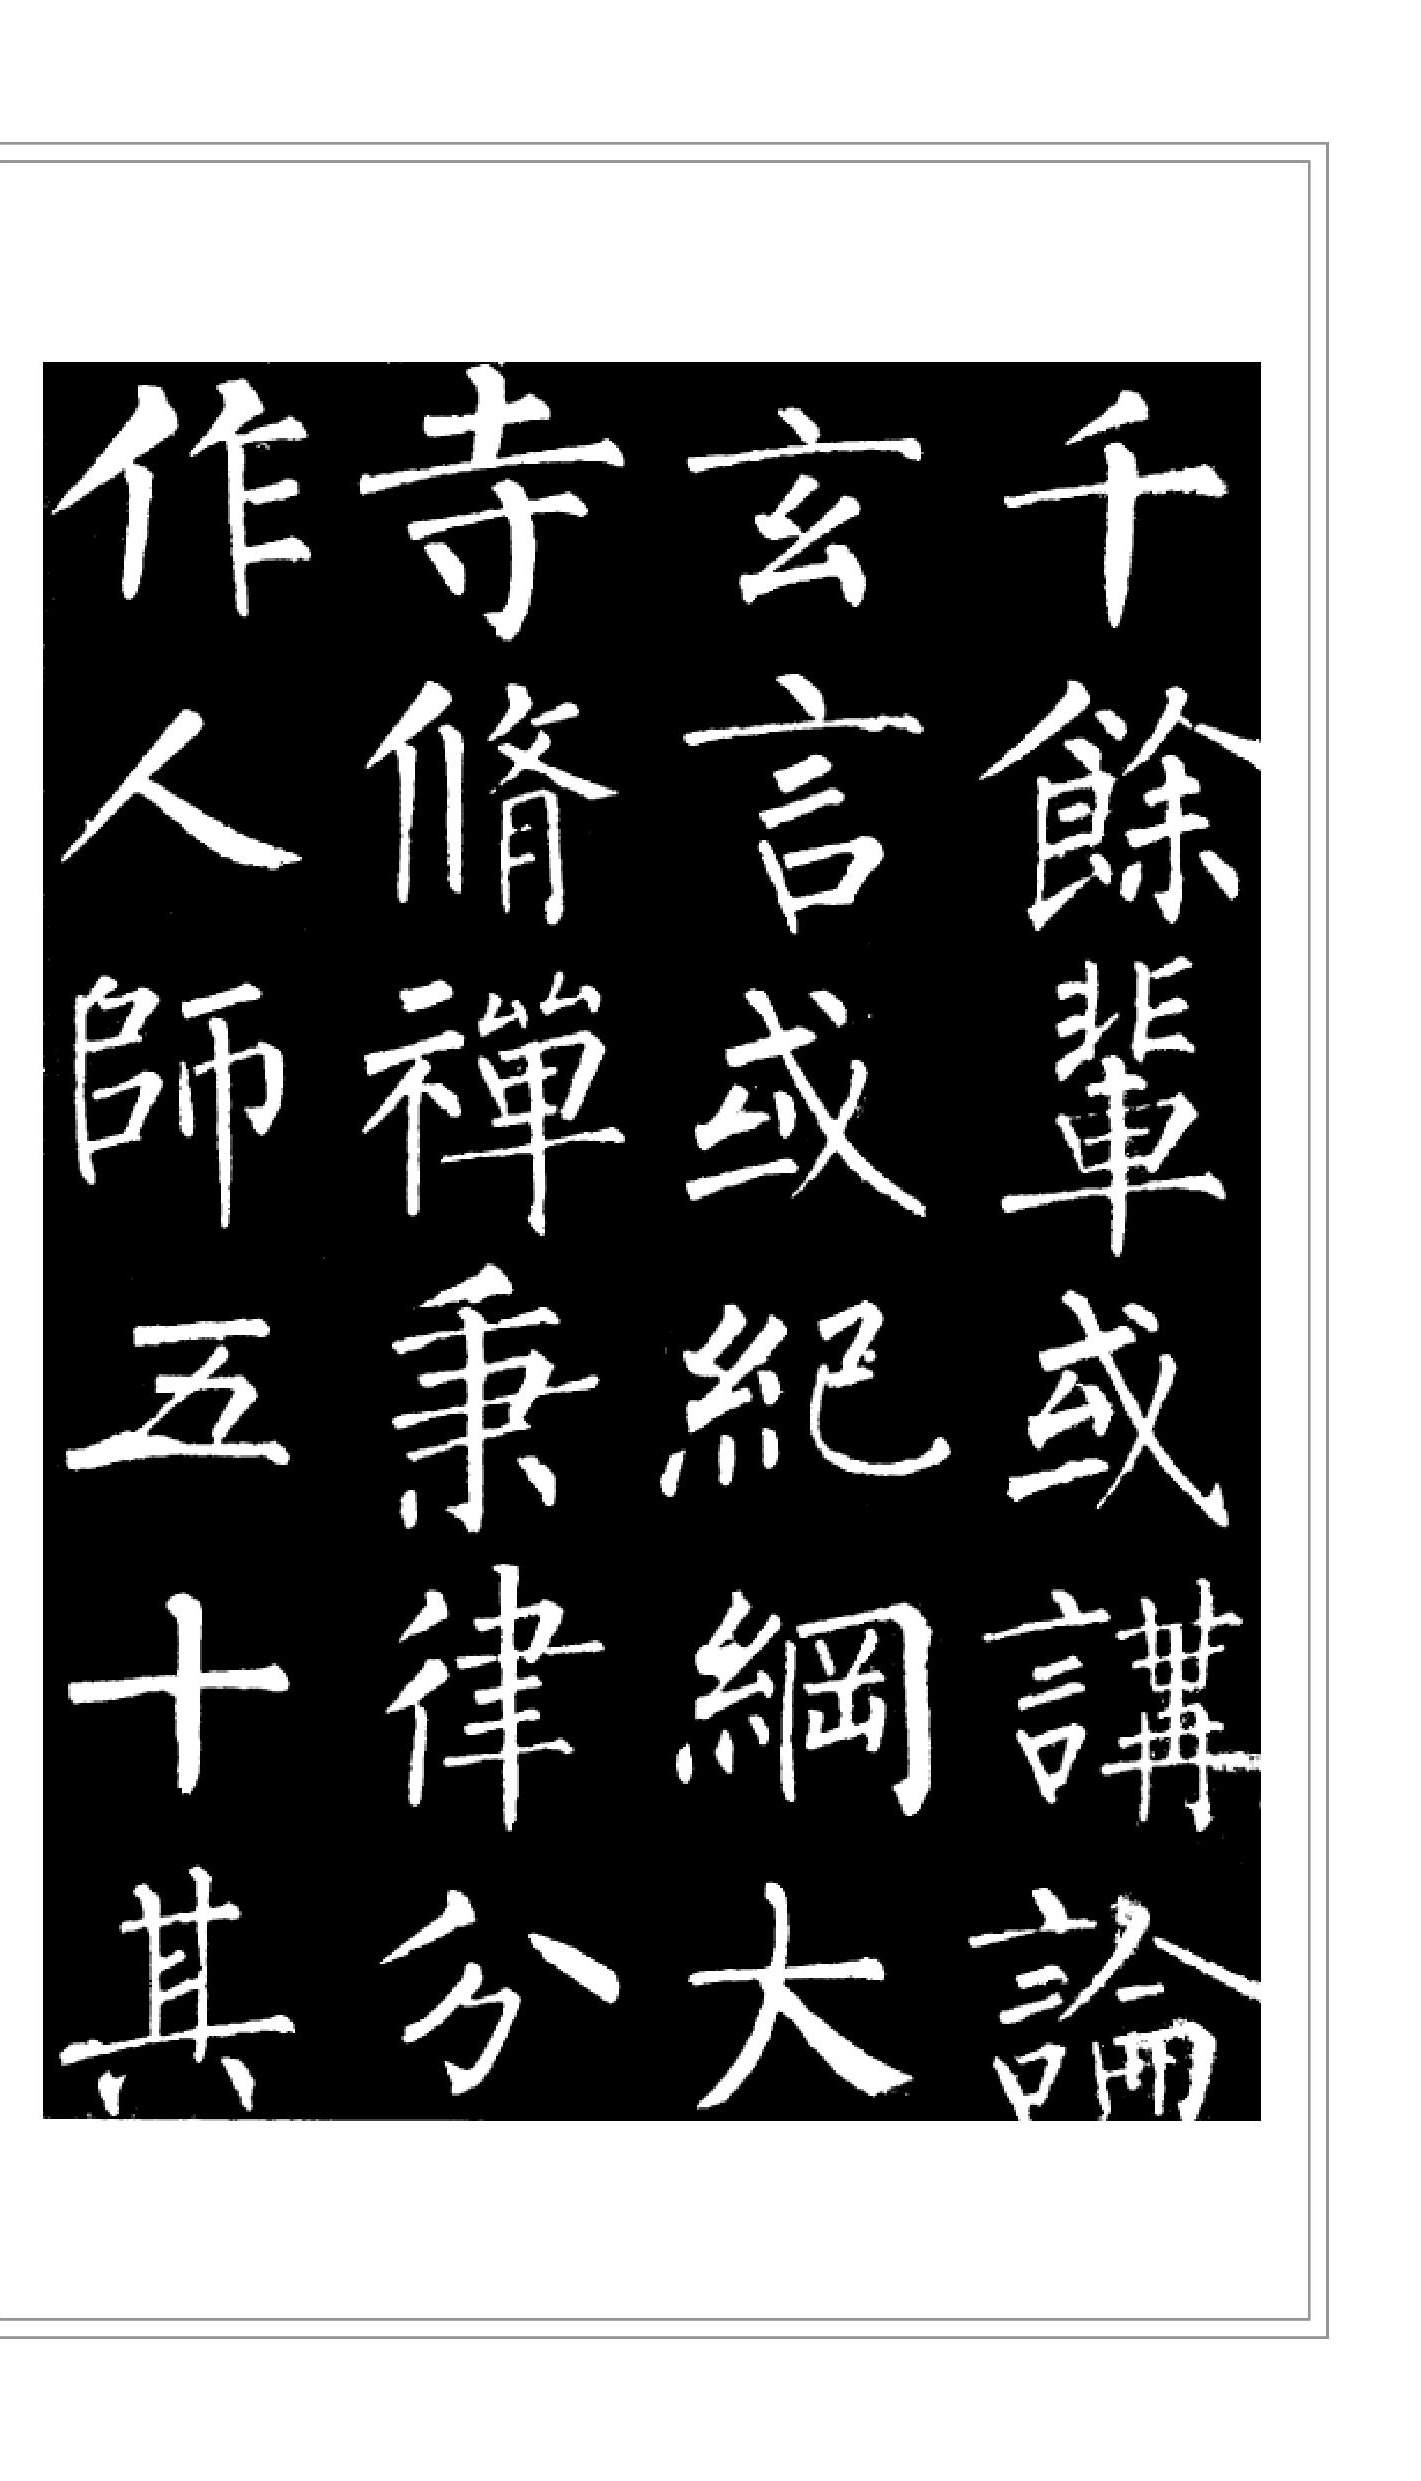 千餘輩或講論
玄言或紀綱大
寺脩禪秉律分
作人師五十其